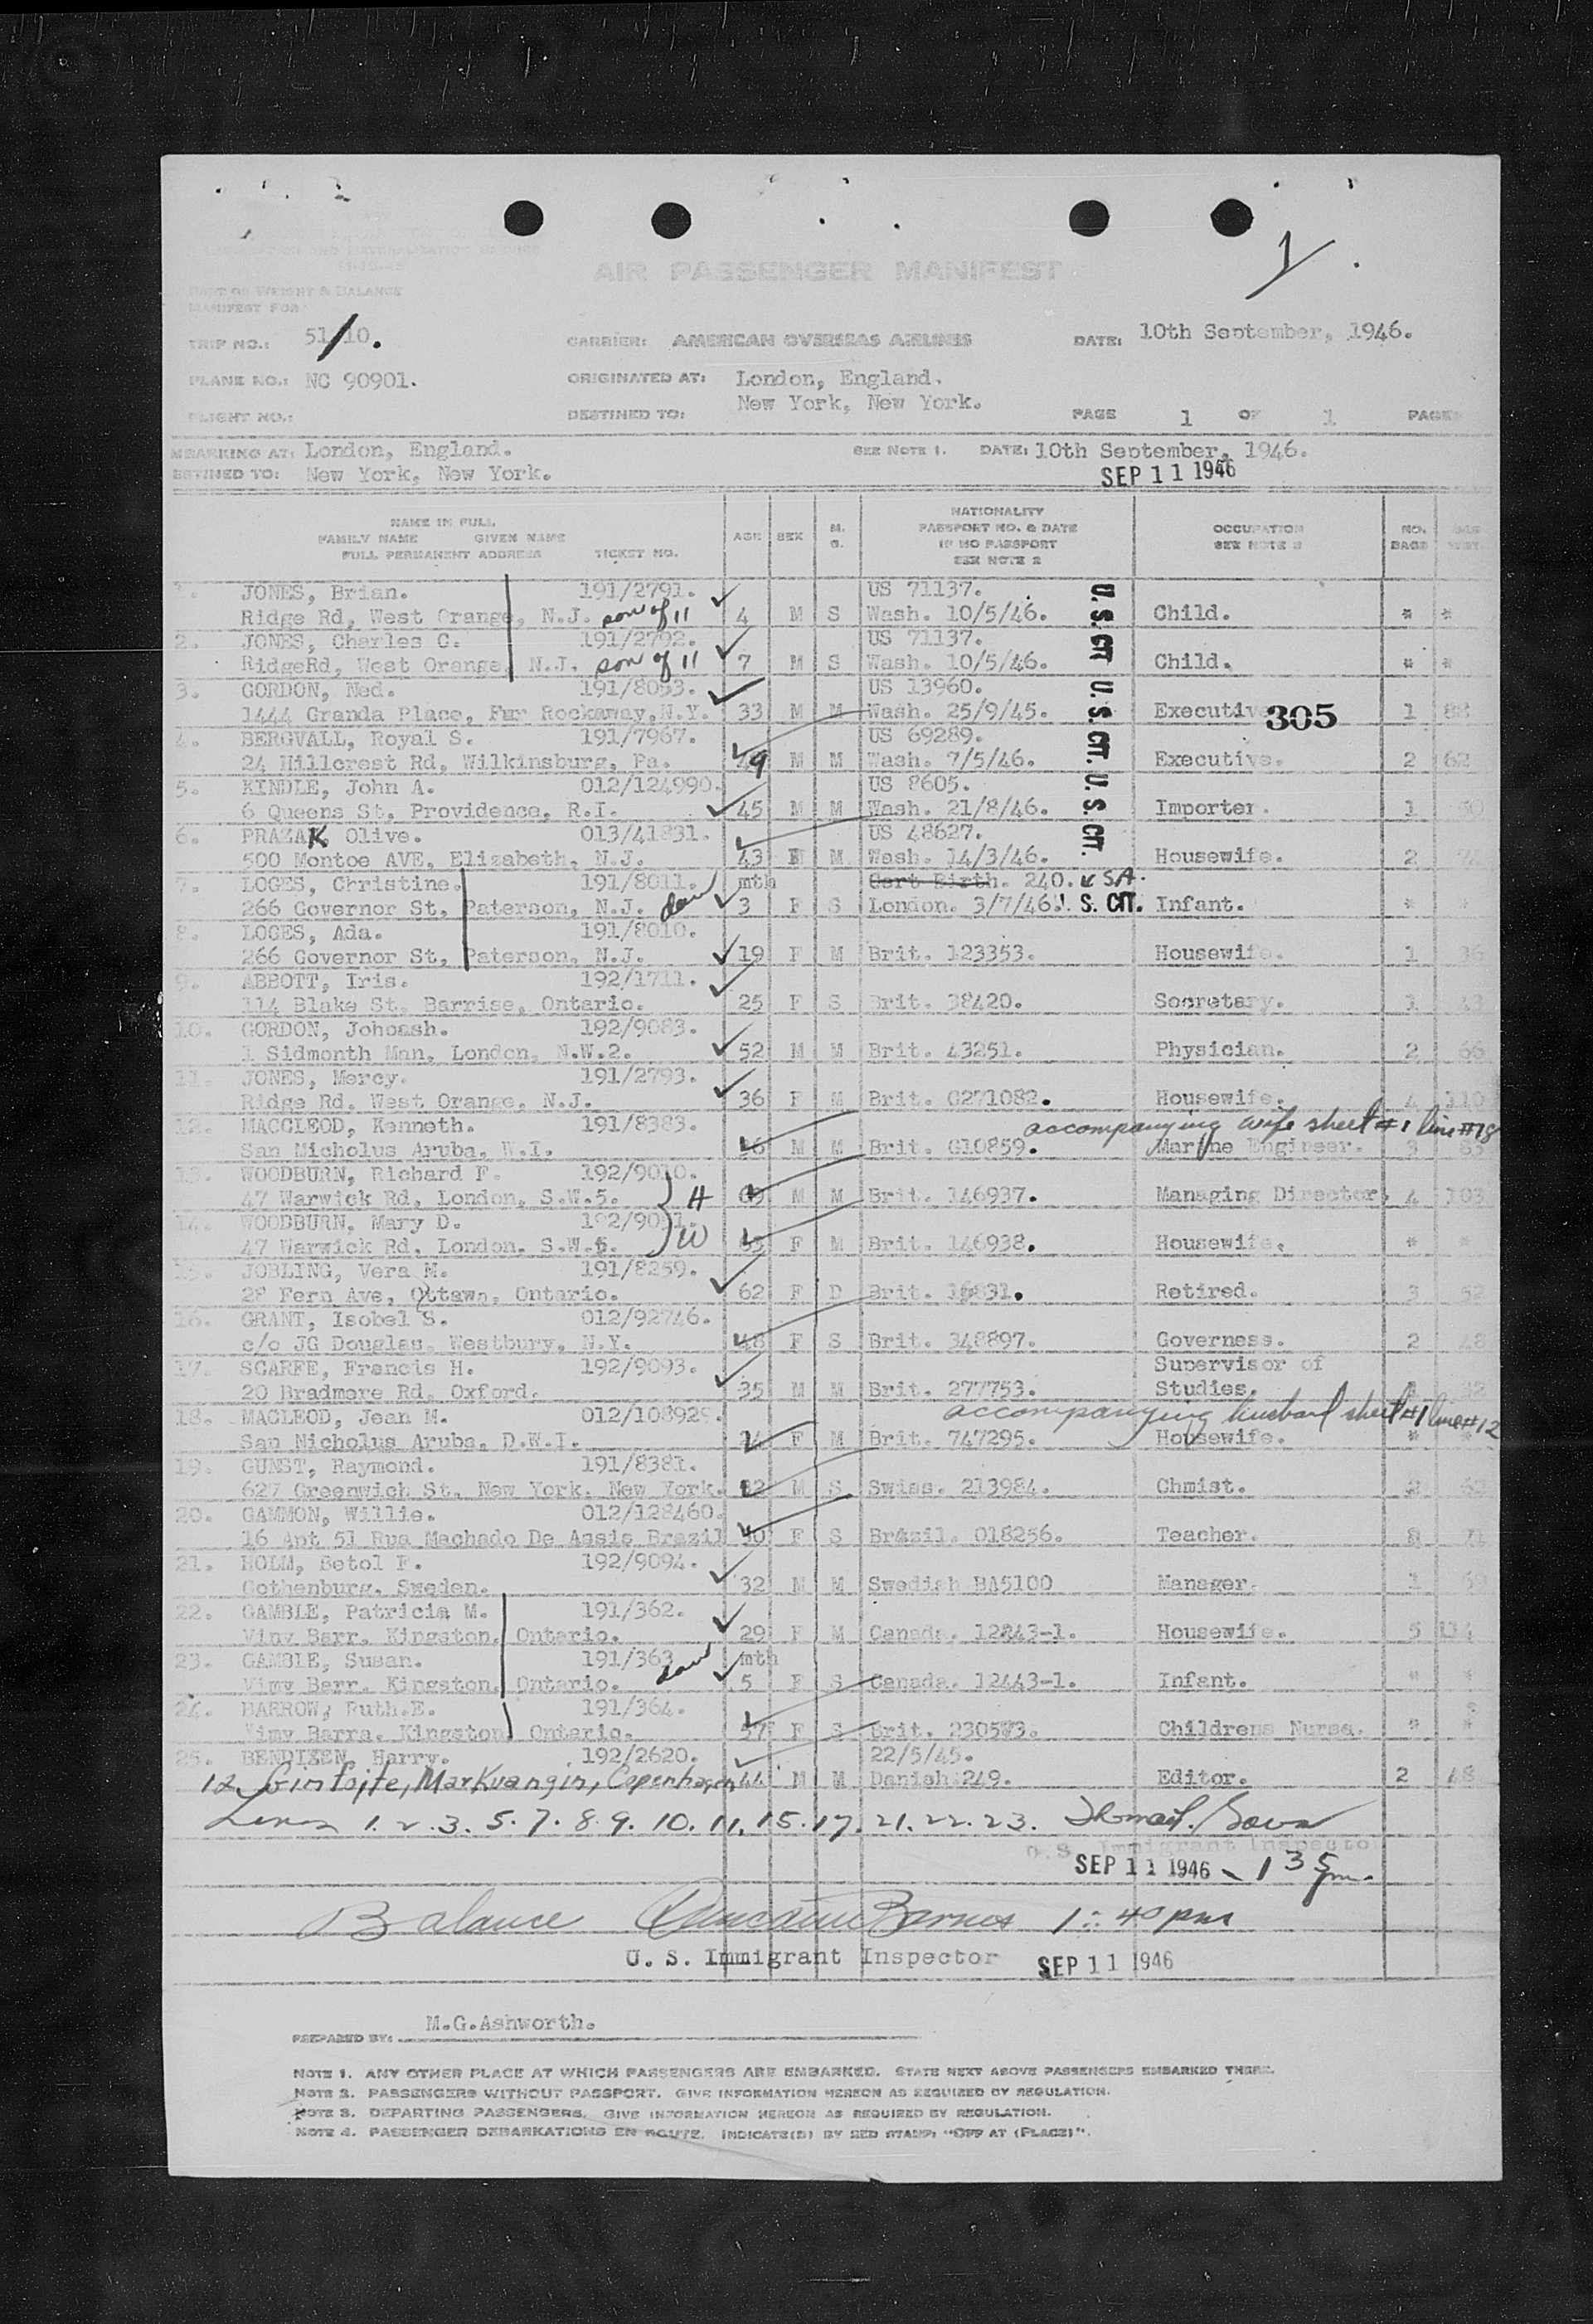 AND NATURALIZATION SERVICE
PART OF WEIGHT & BALANCE
MANIFEST FOR
AIR PASSENGER MANIFEST
TRIP NO.: 51/10. CARRIER: AMERICAN OVERSEAS AIRLINES DATE: 10th September, 1946.
PLANE NO.: NC 90901. ORIGINATED AT: London, England.
FLIGHT NO.: DESTINED TO: New York, New York. PAGE 1 OF 1 PAGES
MBARKING AT: London, England. SEE NOTE 1. DATE: 10th September, 1946.
ESTINED TO: New York, New York. SEP 11 1946
NAME IN FULL
FAMILY NAME GIVEN NAME
FULL PERMANENT ADDRESS TICKET NO. AGE SEX M. S. NATIONALITY PASSPORT NO. & DATE IF NO PASSPORT SEE NOTE 2 OCCUPATION SEE NOTE 3 NO. BAGS
1. JONES, Brian. 191/2791. US 71137.
Ridge Rd, West Orange, N.J. son of 11 4 M S Wash. 10/5/46. U.S. CIT Child. * *
2. JONES, Charles C. 191/2792. US 71137.
RidgeRd, West Orange, N.J. son of 11 7 M S Wash. 10/5/46. Child. * *
3. GORDON, Ned. 191/8053. US 13960.
1444 Granda Place, Far Rockaway, N.Y. 33 M M Wash. 25/9/45. U.S. CIT. Executive 305 1 88
4. BERGVALL, Royal S. 191/7967. US 69289.
24 Hillcrest Rd, Wilkinsburg, Pa. 49 M M Wash. 7/5/46. Executive. 2 62
5. KINDLE, John A. 012/124990. US 8605.
6 Queens St, Providence, R.I. 45 M M Wash. 21/8/46. U.S. CIT. Importer. 1
6. PRAZAK Olive. 013/41831. US 48627.
500 Montoe AVE, Elizabeth, N.J. 43 M Wash. 14/3/46. Housewife. 2
7. LOGES, Christine. 191/8011. mth Cert Birth. 240. USA.
266 Governor St, Paterson, N.J. dau 3 F S London. 3/7/46. U. S. CIT. Infant. * *
8. LOGES, Ada. 191/8010.
266 Governor St, Paterson, N.J. 19 F M Brit. 123353. Housewife. 1 36
9. ABBOTT, Iris. 192/1711.
114 Blake St, Barrise, Ontario. 25 F S Brit. 38420. Secretary. 1 43
10. GORDON, Johoash. 192/9083.
1 Sidmonth Man, London, N.W.2. 52 M M Brit. 43251. Physician. 2 66
11. JONES, Mercy. 191/2793.
Ridge Rd. West Orange, N.J. 36 F M Brit. C271082. Housewife. 4 110
12. MACCLEOD, Kenneth. 191/8383. accompanying wife sheet #1 line #18
San Nicholus Aruba, W.I. M M Brit. C10859. Marine Engineer. 3 65
13. WOODBURN, Richard F. 192/9010.
47 Warwick Rd, London, S.W.5. H M M Brit. 146937. Managing Director. 4 103
14. WOODBURN, Mary D.
47 Warwick Rd, London. S.W.5. W F M Brit. 146938. Housewife. * *
15. JOBLING, Vera M. 191/8259.
28 Fern Ave, Ottawa, Ontario. 62 F D Brit. Retired. 3 52
16. GRANT, Isobel S. 012/92746.
c/o JG Douglas, Westbury, N.Y. 48 F S Brit. 348897. Governess. 2 48
17. SCARFE, Francis H. 192/9093. Supervisor of
20 Bradmore Rd, Oxford. 35 M M Brit. 277753. Studies.
18. MACLEOD, Jean M. 012/108929. accompanying husband sheet #1 line #12
San Nicholus Aruba, D.W.I. F M Brit. 747295. Housewife. * *
19. GUNST, Raymond. 191/8381.
627 Greenwich St, New York. New York. M S Swiss. 213984. Chmist. 2 62
20. GAMMON, Willie. 012/128460.
16 Apt 51 Rua Machado De Assis Brazil F S Brazil. 018256. Teacher.
21. HOLM, Betol F. 192/9094.
Gothenburg. Sweden. 32 M M Swedish BA5100 Manager. 1
22. GAMBLE, Patricia M. 191/362.
Vimy Barr. Kingston, Ontario. 29 F M Canada. 12843-1. Housewife. 5 114
23. GAMBLE, Susan. 191/363 mth
Vimy Barr. Kingston, Ontario. dau 5 F S Canada. 12443-1. Infant. * *
24. BARROW, Ruth.E. 191/364.
Vimy Barra. Kingston, Ontario. 57 F S Brit. Childrens Nurse. * *
25. BENDIXEN, Harry. 192/2620. 22/5/45.
12 Copenhagen 44 M M Danish 249. Editor. 2 48
Lines 1. 2. 3. 5. 7. 8. 9. 10. 11. 15. 17. 21. 22. 23.
U. S. Immigrant Inspector
SEP 11 1946 - 1 35 pm.
Balance Barnes 1:40 pm
U. S. Immigrant Inspector SEP 11 1946
PREPARED BY: M.G.Ashworth.
NOTE 1. ANY OTHER PLACE AT WHICH PASSENGERS ARE EMBARKED. STATE NEXT ABOVE PASSENGERS EMBARKED THERE.
NOTE 2. PASSENGERS WITHOUT PASSPORT. GIVE INFORMATION HEREON AS REQUIRED BY REGULATION.
NOTE 3. DEPARTING PASSENGERS. GIVE INFORMATION HEREON AS REQUIRED BY REGULATION.
NOTE 4. PASSENGER DEBARKATIONS EN ROUTE. INDICATE(D) BY RED STAMP: "OFF AT (PLACE)".